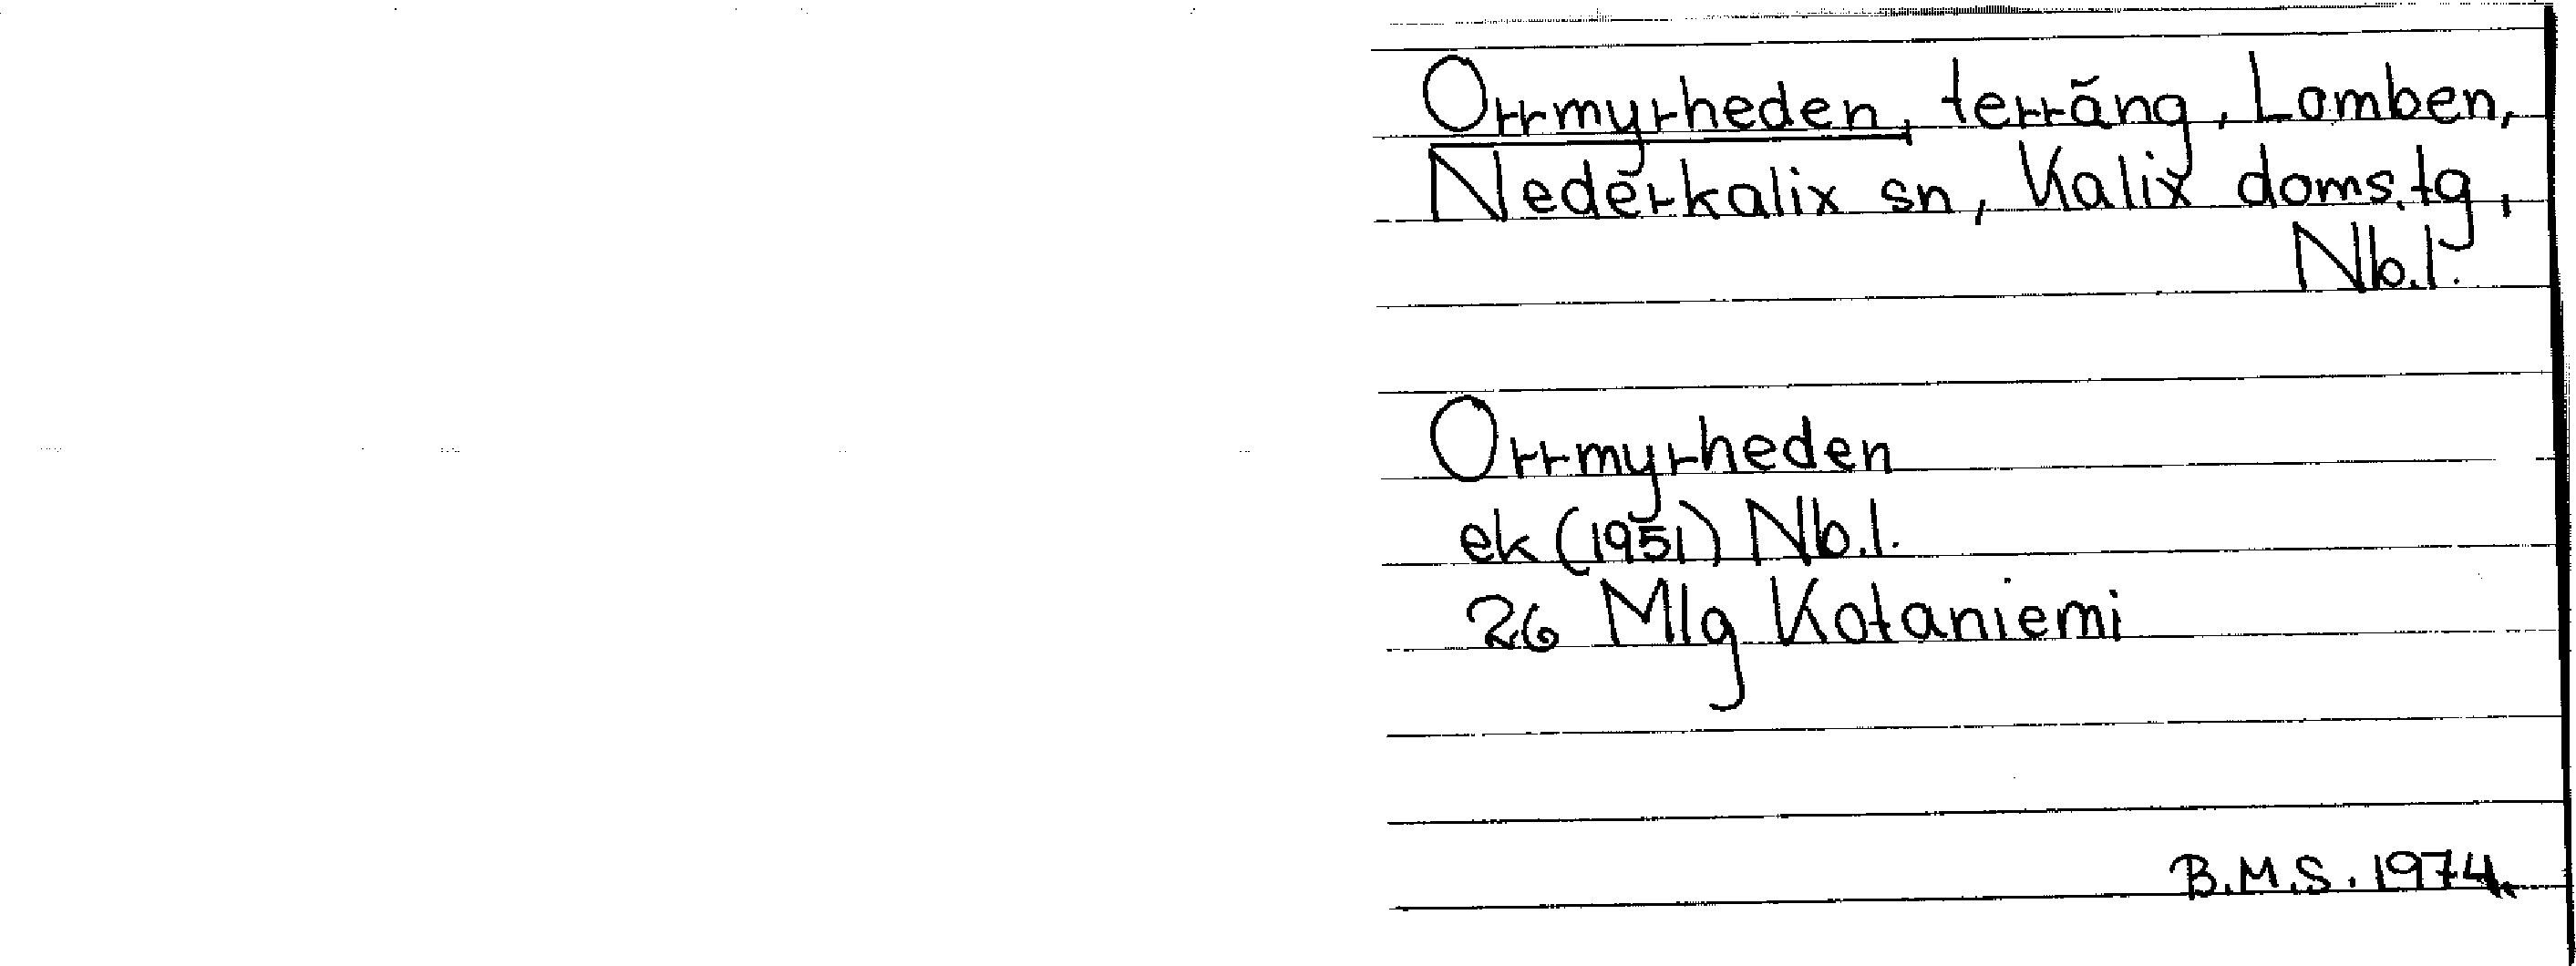 Orrmyrheden, terräng, Lomben,
Nederkalix sn, Kalix doms.tg,
Nb.l.
Orrmyrheden
ek (1951) Nb.l.
26 Mlg Kotaniemi
B.M.S. 1974.